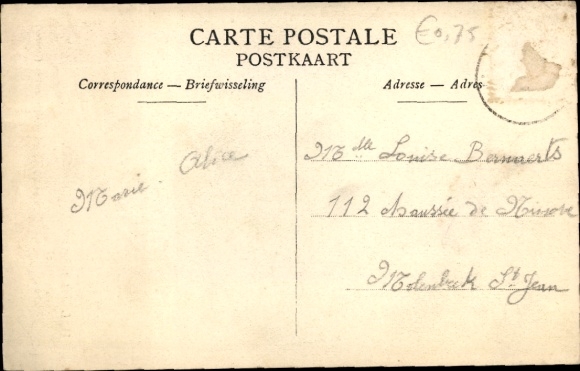 CARTE POSTALE
POSTKAART
€0,75
Correspondance — Briefwisseling
Adresse — Adres
Marie - Alice
Mlle Louise Bernaerts
112 Chaussée de Ninove
Molenbeek St Jean